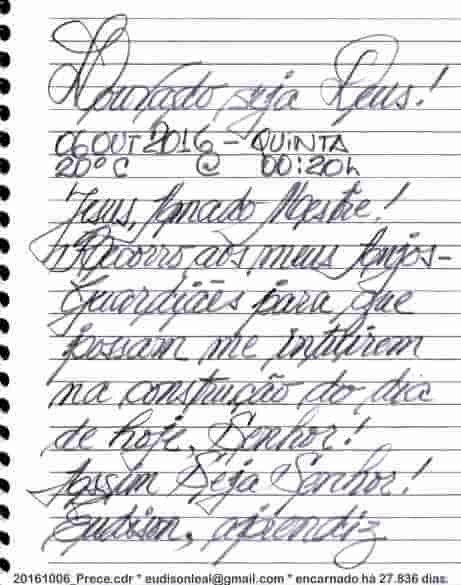 Louvado seja Deus!
06 OUT 2016 - QUINTA
20°C @ 00:20h
Jesus, Amado Mestre!
Recorro aos meus Anjos-
Guardiães para que
possam me intuirem
na construção do dia
de hoje, Senhor!
Assim Seja Senhor!
Eudison, aprendiz
20161006_Prece.cdr * eudisonleal@gmail.com * encarnado há 27.836 dias.